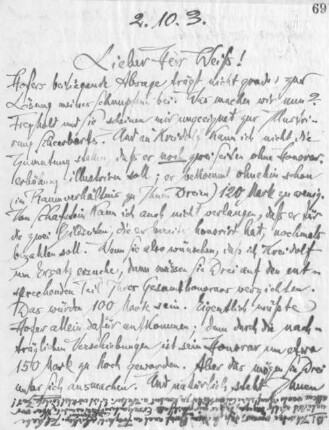 69
2. 10. 3.
Lieber Herr Weiß!
Hofers beiliegende Absage trägt nicht grade zur
Lösung meines Schnupfens bei. Was machen wir nun?
Freyhold und sie scheinen mir ungeeignet zur Illustrie-
rung Scheerbarts. Und an Kreidolf kann ich nicht die
Zumutung stellen, daß er noch zwei Seiten ohne Honorar-
erhöhung illustrieren soll; er bekommt ohnehin schon
(im Raumverhältnis zu Ihnen Dreien) 120 Mark zu wenig.
Von Schafstein kann ich auch nicht verlangen, daß er für
die zwei Seiten, die er bereits honoriert hat, nochmals
bezahlen soll. Wenn Sie also wünschen, daß ich Kreidolf
um Ersatz ersuche, dann müssen Sie Drei auf den ent-
sprechenden Teil Ihrer Gesamthonorare verzichten.
Das würden 100 Mark sein. Eigentlich müßte
Hofer allein dafür aufkommen; denn durch die nach-
träglichen Verschiebungen ist sein Honorar um etwa
150 Mark zu hoch geworden. Aber das mögen Sie Drei
unter sich ausmachen. Und natürlich steht Ihnen